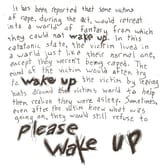 It has been reported that some victims
of rape, during the act, would retreat
into a world of fantasy from which
they could not wake up. In this
catatonic state, the victim lived in
a world just like their normal one,
except they weren't being raped. The
of the victim would after try
to wake up the victim by leaving
around the victims world to help
them realize they were asleep. Sometimes,
even after the victim knew what was
going on, they would still refuse to
please
wake up